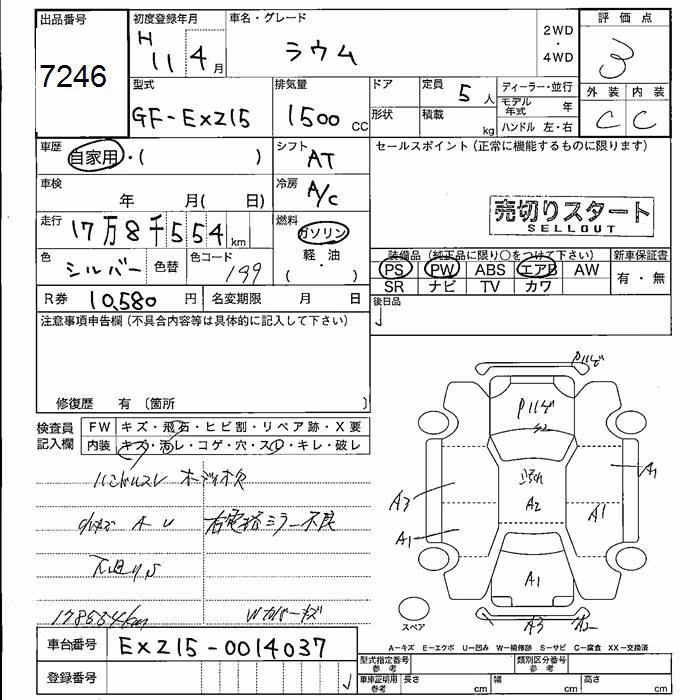 出品番号
7246
初度登録年月
H 11 4月
車名・グレード
ラウム
2WD
・
4WD
評価点
3
型式
GF-EXZ15
排気量
1500 CC
ドア
形状
定員 5 人
積載 kg
ディーラー・並行
モデル年式 年
ハンドル 左・右
外装 内装
C C
車歴
自家用・( )
シフト
AT
セールスポイント(正常に機能するものに限ります)
車検
年 月( 日)
冷房
A/C
売切りスタート
SELLOUT
走行
17万8千554 km
燃料
ガソリン
軽油
・
( )
色
シルバー
色替
色コード
199
装備品(純正品に限り○をつけて下さい)
PS PW ABS エアB AW
SR ナビ TV カワ
新車保証書
有・無
R券 10,580 円
名変期限 月 日
後日品
注意事項申告欄(不具合内容等は具体的に記入して下さい)
修復歴 有 〔箇所 〕
検査員
記入欄
FW キズ・飛石・ヒビ割・リペア跡・X要
内装 キズ・汚レ・コゲ・穴・スレ・キレ・破レ
ハンドルスレ オーディオ欠
小キズ A U 右電格ミラー不良
下廻りS
178554km Wカバーキズ
P11ゼ
P11ゼ
A2
A3
A1
A1
A1
A1
A3
スペア
車台番号 EXZ15-0014037
登録番号
A-キズ E-エクボ U-凹み W-補修跡 S-サビ C-腐食 XX-交換済
型式指定番号
参考
類別区分番号
参考
車庫証明用
参考
長さ cm
幅 cm
高さ cm